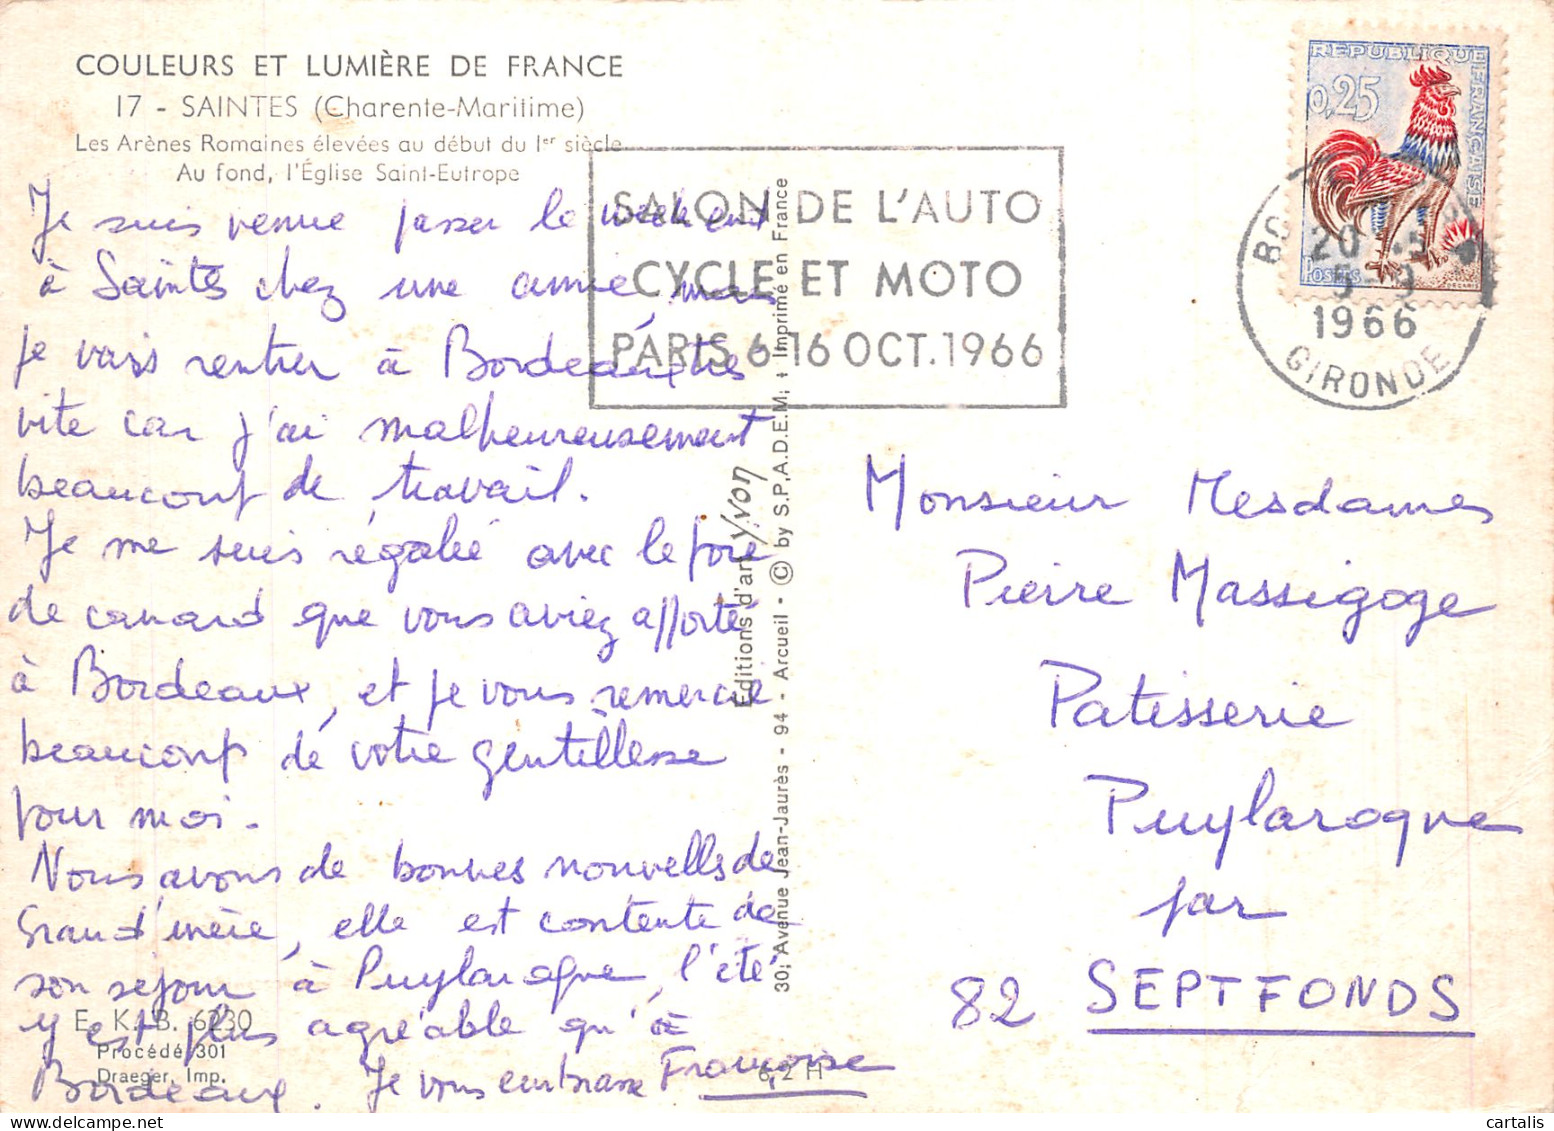 COULEURS ET LUMIÈRE DE FRANCE
17 - SAINTES (Charente-Maritime)
Les Arènes Romaines élevées au début du Ier siècle
Au fond, l'Église Saint-Eutrope
Je suis venue passer le week end
à Saintes chez une amie, mais
je vais rentrer à Bordeaux très
vite car j'ai malheureusement
beaucoup de travail.
Je me suis régalée avec le foie
de canard que vous aviez apporté
à Bordeaux, et je vous remercie
beaucoup de votre gentillesse
pour moi.
Nous avons de bonnes nouvelles de
Grand'mère, elle est contente de
son séjour à Puylaroque, l'été
y est plus agréable qu'à
Bordeaux. Je vous embrasse Françoise
E. K. B. 6230
Procédé 301
Draeger, Imp.
6,2 H
Editions d'art Yvon
30, Avenue Jean-Jaurès - 94 - Arcueil - © by S.P.A.D.E.M. - Imprimé en France
SALON DE L'AUTO
CYCLE ET MOTO
PARIS 6-16 OCT. 1966
REPUBLIQUE FRANÇAISE
0,25
POSTES
20
5-9
1966
GIRONDE
Monsieur Mesdames
Pierre Massigoge
Patisserie
Puylaroque
par
82 SEPTFONDS
cartalis